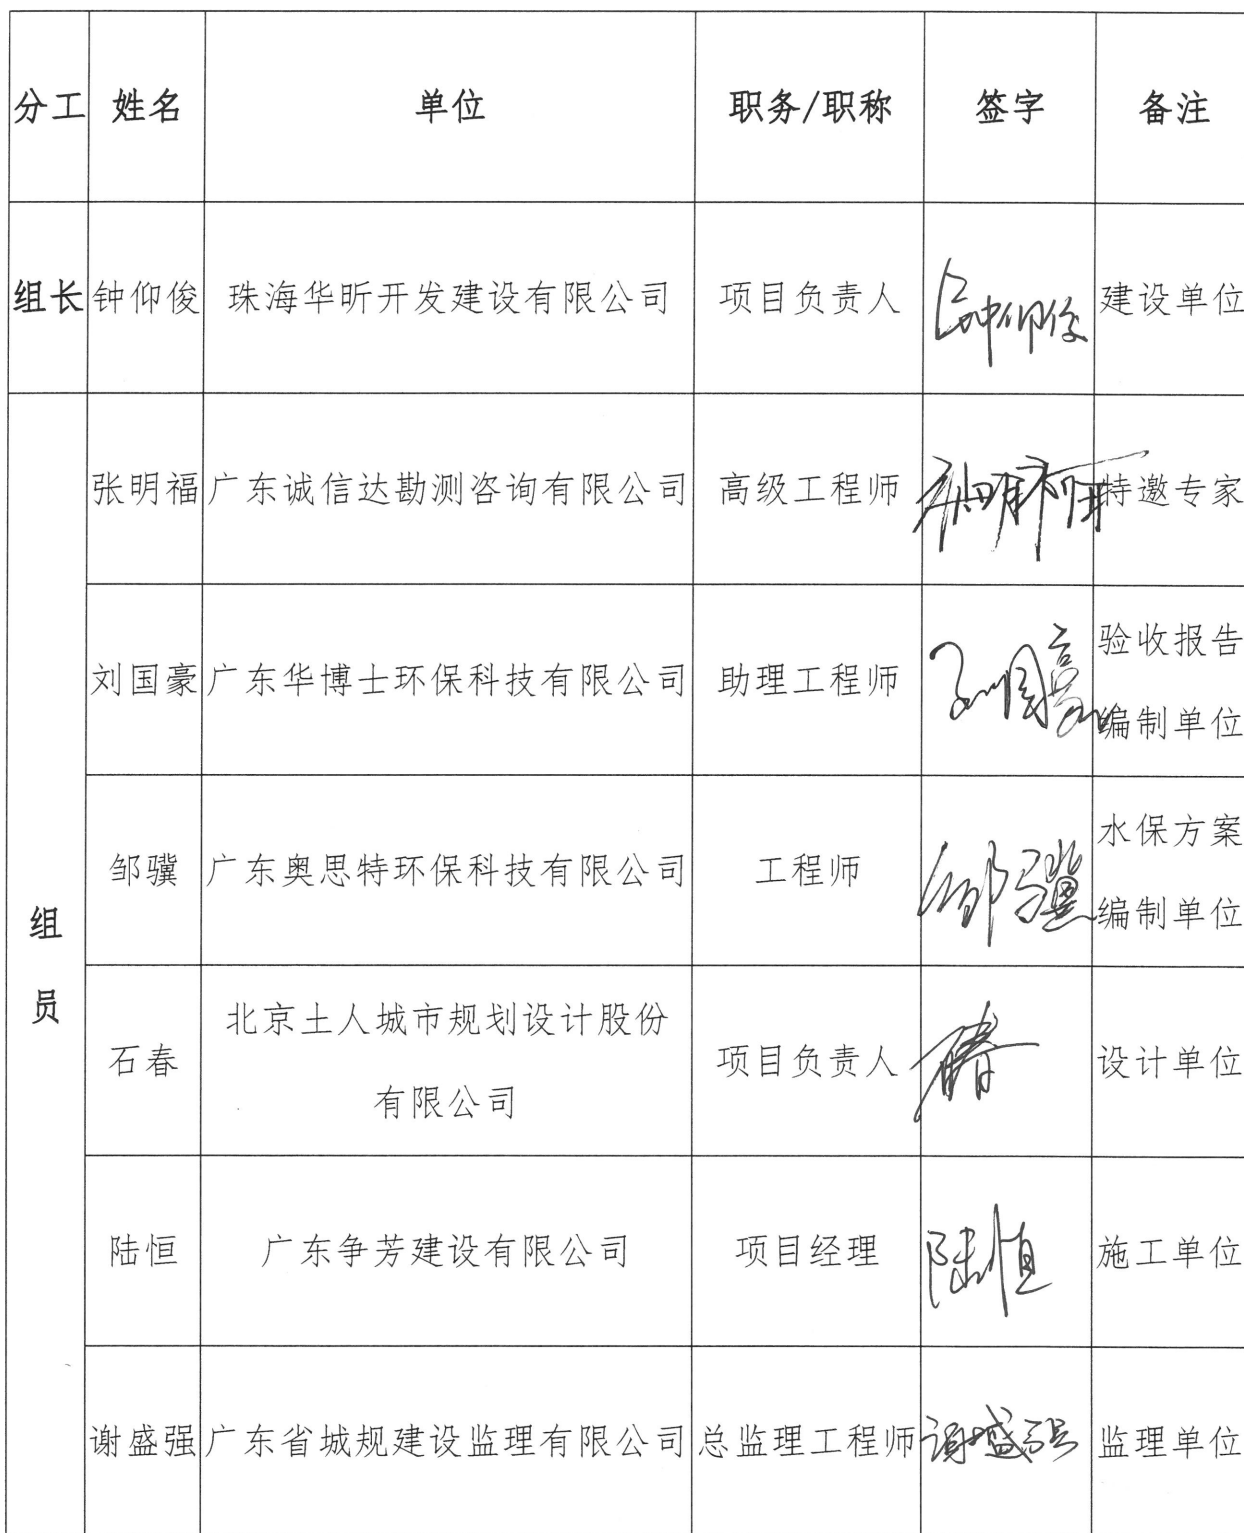 分工 姓名 单位 职务/职称 签字 备注
组长 钟仰俊 珠海华昕开发建设有限公司 项目负责人 钟仰俊 建设单位
组员
张明福 广东诚信达勘测咨询有限公司 高级工程师 张明福 特邀专家
刘国豪 广东华博士环保科技有限公司 助理工程师 刘国豪 验收报告
编制单位
邹骥 广东奥思特环保科技有限公司 工程师 邹骥 水保方案
编制单位
石春 北京土人城市规划设计股份
有限公司 项目负责人 石春 设计单位
陆恒 广东争芳建设有限公司 项目经理 陆恒 施工单位
谢盛强 广东省城规建设监理有限公司 总监理工程师 谢盛强 监理单位